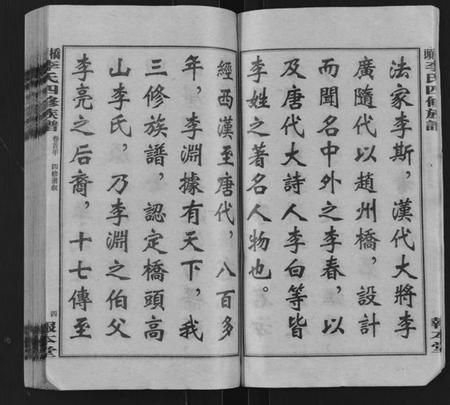 法家李斯，漢代大將李
廣隨代以趙州橋，設計
而聞名中外之李春，以
及唐代大詩人李白等皆
李姓之著名人物也。
經西漢至唐代，八百多
年，李淵據有天下，我
三修族譜，認定橋頭高
山李氏，乃李淵之伯父
李亮之后裔，十七傳至
橋 李氏四修族譜
卷首
四
報本堂
頭李氏四修族譜
報本堂